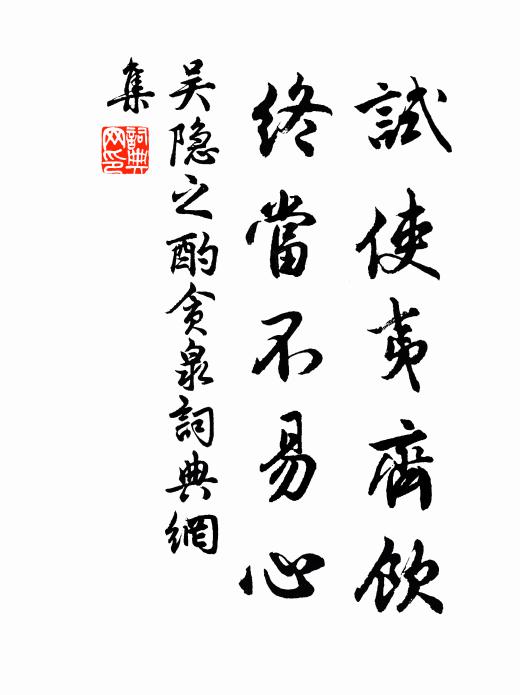 試使夷齊飲
終當不易心
吳隐之酌貪泉詞典網
集
詞典
网印